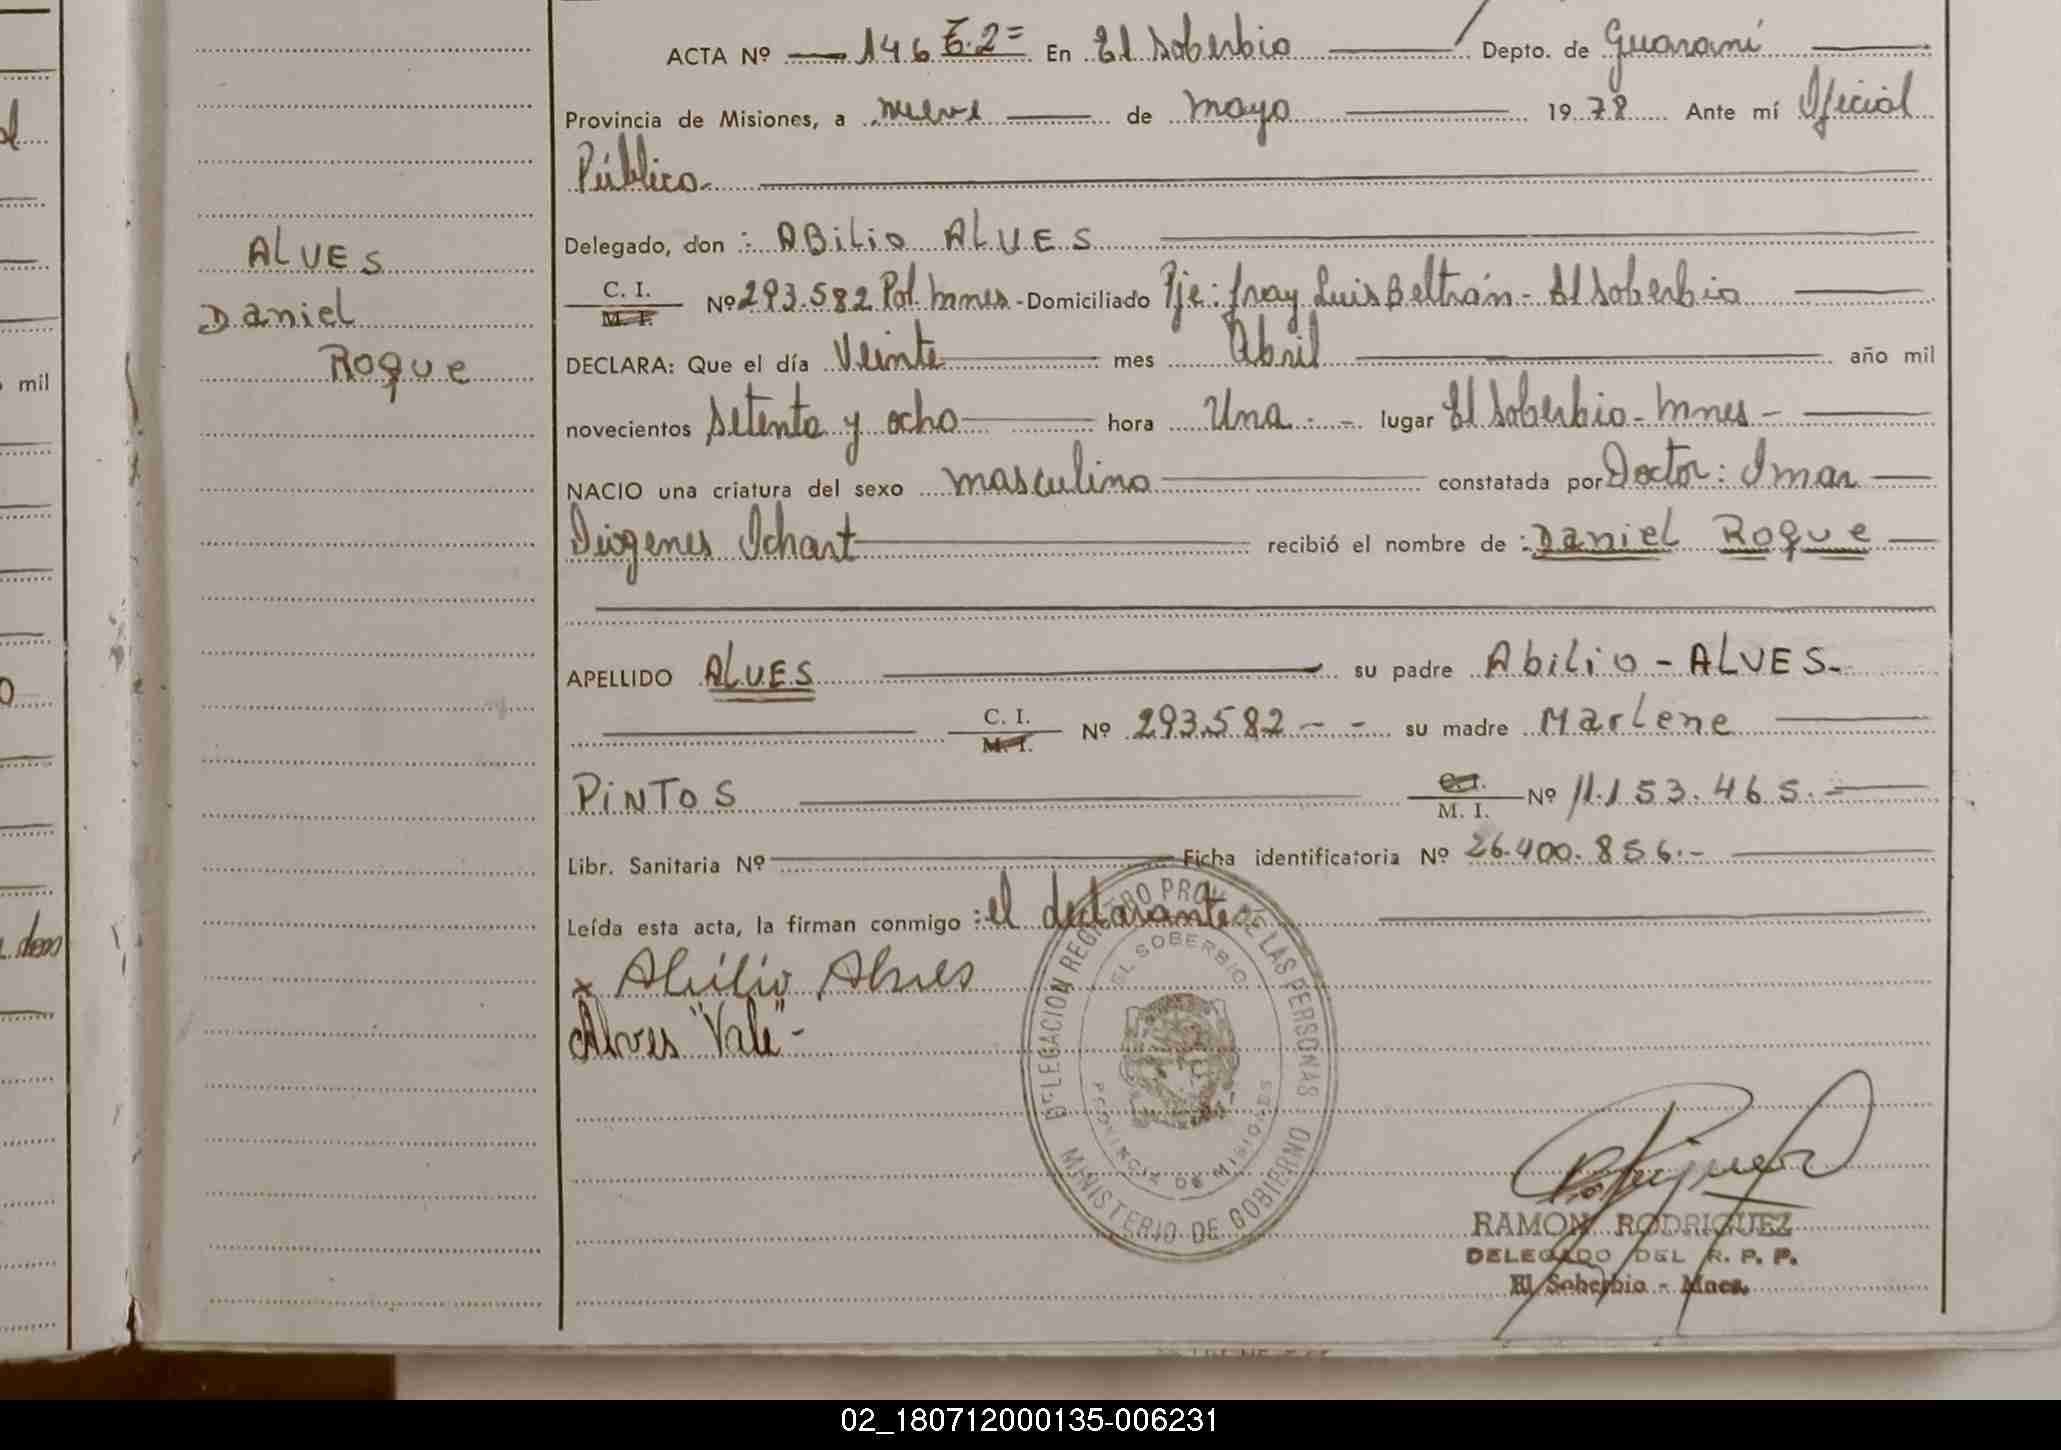 ACTA Nº 146 T. 2= En El Soberbio Depto. de Guaraní
Provincia de Misiones, a nueve de mayo 1978 Ante mí Oficial
Público.
ALVES
Daniel
Roque
Delegado, don : ABiLio ALVES
C. I. M. I. Nº 293.582 Pol. Mnes - Domiciliado Pje: fray Luis Beltrán - El Soberbio
DECLARA: Que el día Veinte mes Abril año mil
novecientos setenta y ocho hora Una . - lugar El Soberbio - Mnes -
NACIO una criatura del sexo masculino constatada por Doctor : Imar
Diogenes Ichart recibió el nombre de : Daniel Roque
APELLIDO ALVES su padre AbiLio - ALVES -
C. I. M. I. Nº 293.582 - - su madre MarLene
PiNTOS C. I. M. I. Nº 11.153.465. -
Libr. Sanitaria Nº Ficha identificatoria Nº 26.400.856. -
Leída esta acta, la firman conmigo : el declarante
x Abilio Alves
Alves "Vale" -
DELEGACION REGISTRO PROV. DE LAS PERSONAS
EL SOBERBIO
PROVINCIA DE MISIONES
MINISTERIO DE GOBIERNO
RAMON RODRIGUEZ
DELEGADO DEL R. P. P.
El Soberbio - Mnes.
mil
02_180712000135-006231